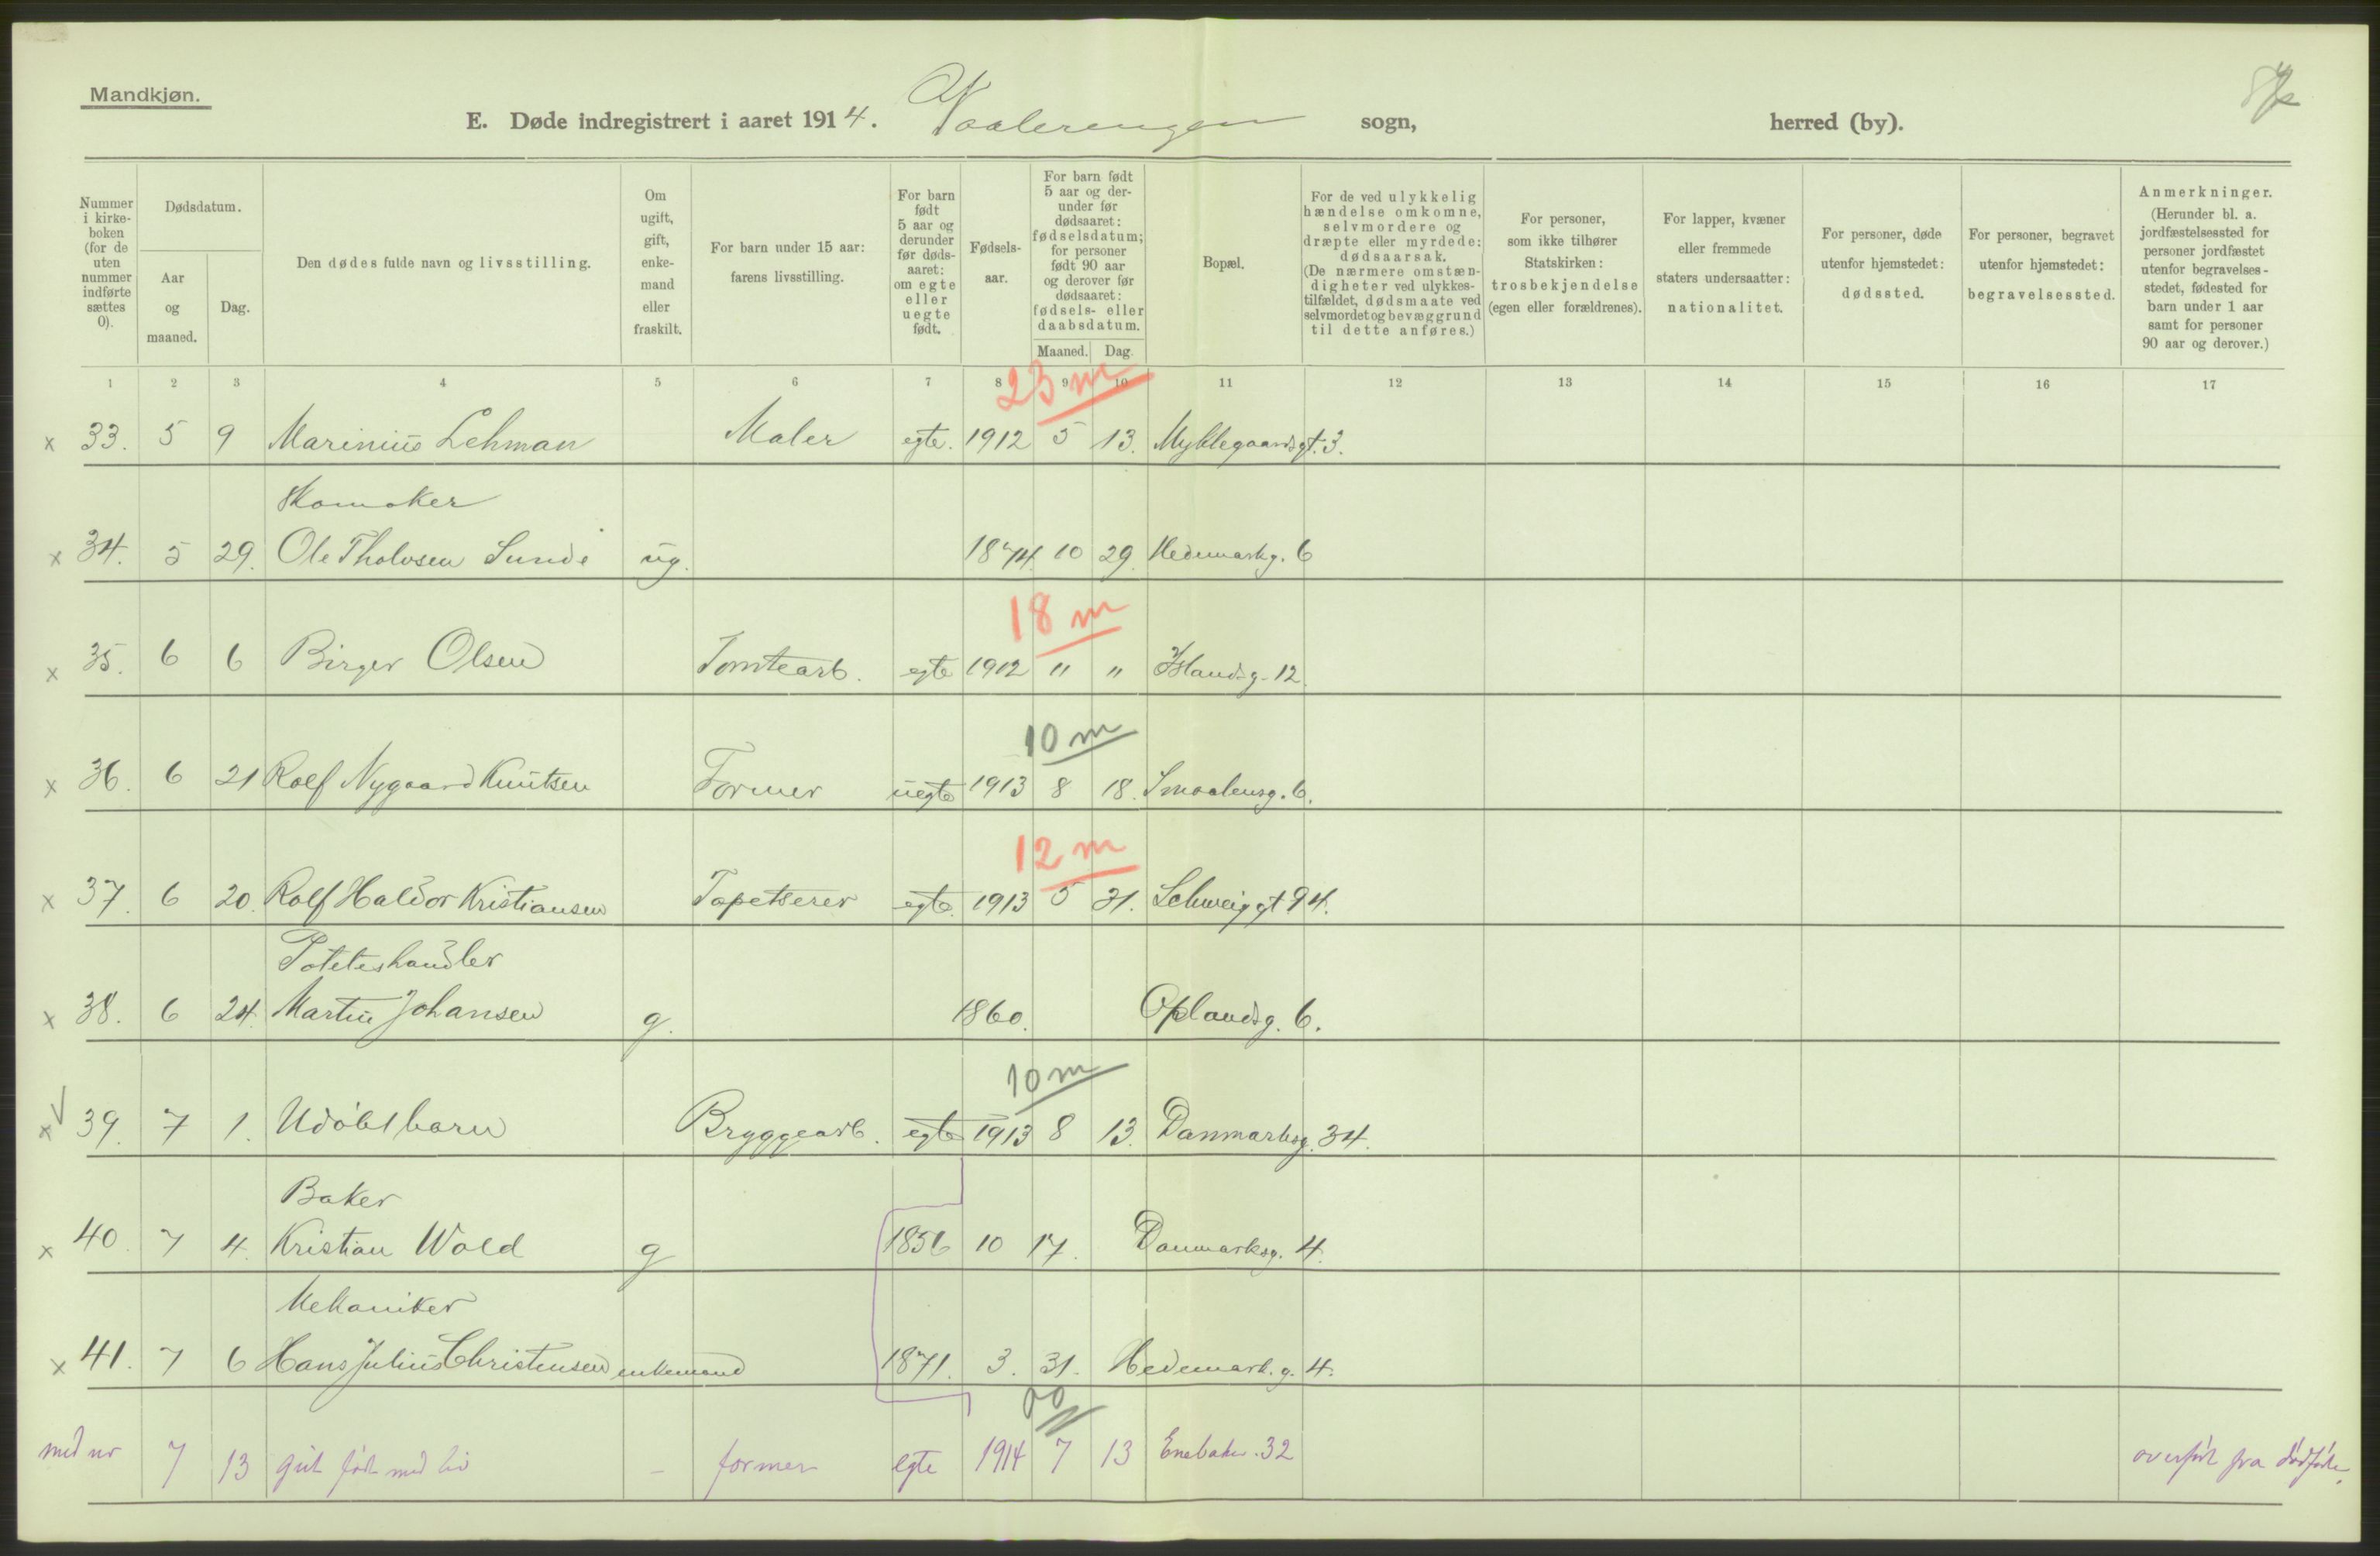 Mandkjøn.
E. Døde indregistrert i aaret 1914. Vaalerengen sogn, herred (by).
Nummer i kirke-boken (for de uten nummer indførte sættes 0).
Dødsdatum.
Aar og maaned.
Dag.
Den dødes fulde navn og livsstilling.
Om ugift, gift, enke-mand eller fraskilt.
For barn under 15 aar: farens livsstilling.
For barn født 5 aar og derunder før døds-aaret: om egte eller uegte født.
Fødsels-aar.
For barn født 5 aar og der-under før dødsaaret: fødselsdatum; for personer født 90 aar og derover før dødsaaret: fødsels- eller daabsdatum.
Maaned. Dag.
Bopæl.
For de ved ulykkelig hændelse omkomne, selvmordere og dræpte eller myrdede: dødsaarsak. (De nærmere omstæn-digheter ved ulykkes-tilfældet, dødsmaate ved selvmordet og bevæggrund til dette anføres.)
For personer, som ikke tilhører Statskirken: trosbekjendelse (egen eller forældrenes).
For lapper, kvæner eller fremmede staters undersaatter: nationalitet.
For personer, døde utenfor hjemstedet: dødssted.
For personer, begravet utenfor hjemstedet: begravelsessted.
Anmerkninger. (Herunder bl. a. jordfæstelsessted for personer jordfæstet utenfor begravelses-stedet, fødested for barn under 1 aar samt for personer 90 aar og derover.)
1 2 3 4 5 6 7 8 9 10 11 12 13 14 15 16 17
23 m
x 33. 5 9 Marinius Lehman Maler egte. 1912 5 13. Myklegaardsgt. 3.
Skomaker
x 34. 5 29. Ole Tholvsen Sunde ug. 1874. 10 29. Hedemarkg. 6
18 m
x 35. 6 6 Birger Olsen Tomtearb. egte 1912 " " Islandsg. 12.
10 m
x 36. 6 21 Rolf Nygaard Knutsen Former uegte 1913 8 18. Smaalensg. 6.
12 m
x 37. 6 20. Rolf Haldor Kristiansen Tapetserer egte. 1913 5 31. Schweiggt 94.
Poteteshandler
x 38. 6 24. Martin Johansen g. 1860. Oplandsg. 6.
10 m
x 39. 7 1. Udøbt barn Bryggearb. egte 1913 8 13. Danmarksg. 34.
Baker
x 40. 7 4. Kristian Wold g 1856 10 17. Danmarksg. 4.
Mekaniker
x 41. 7 6 Hans Julius Christensen enkemand 1871. 3. 31. Hedemark.g. 4.
00
med nr 7 13 gut født med liv – former egte 1914 7 13 Enebakv. 32 overført fra dødfødte.